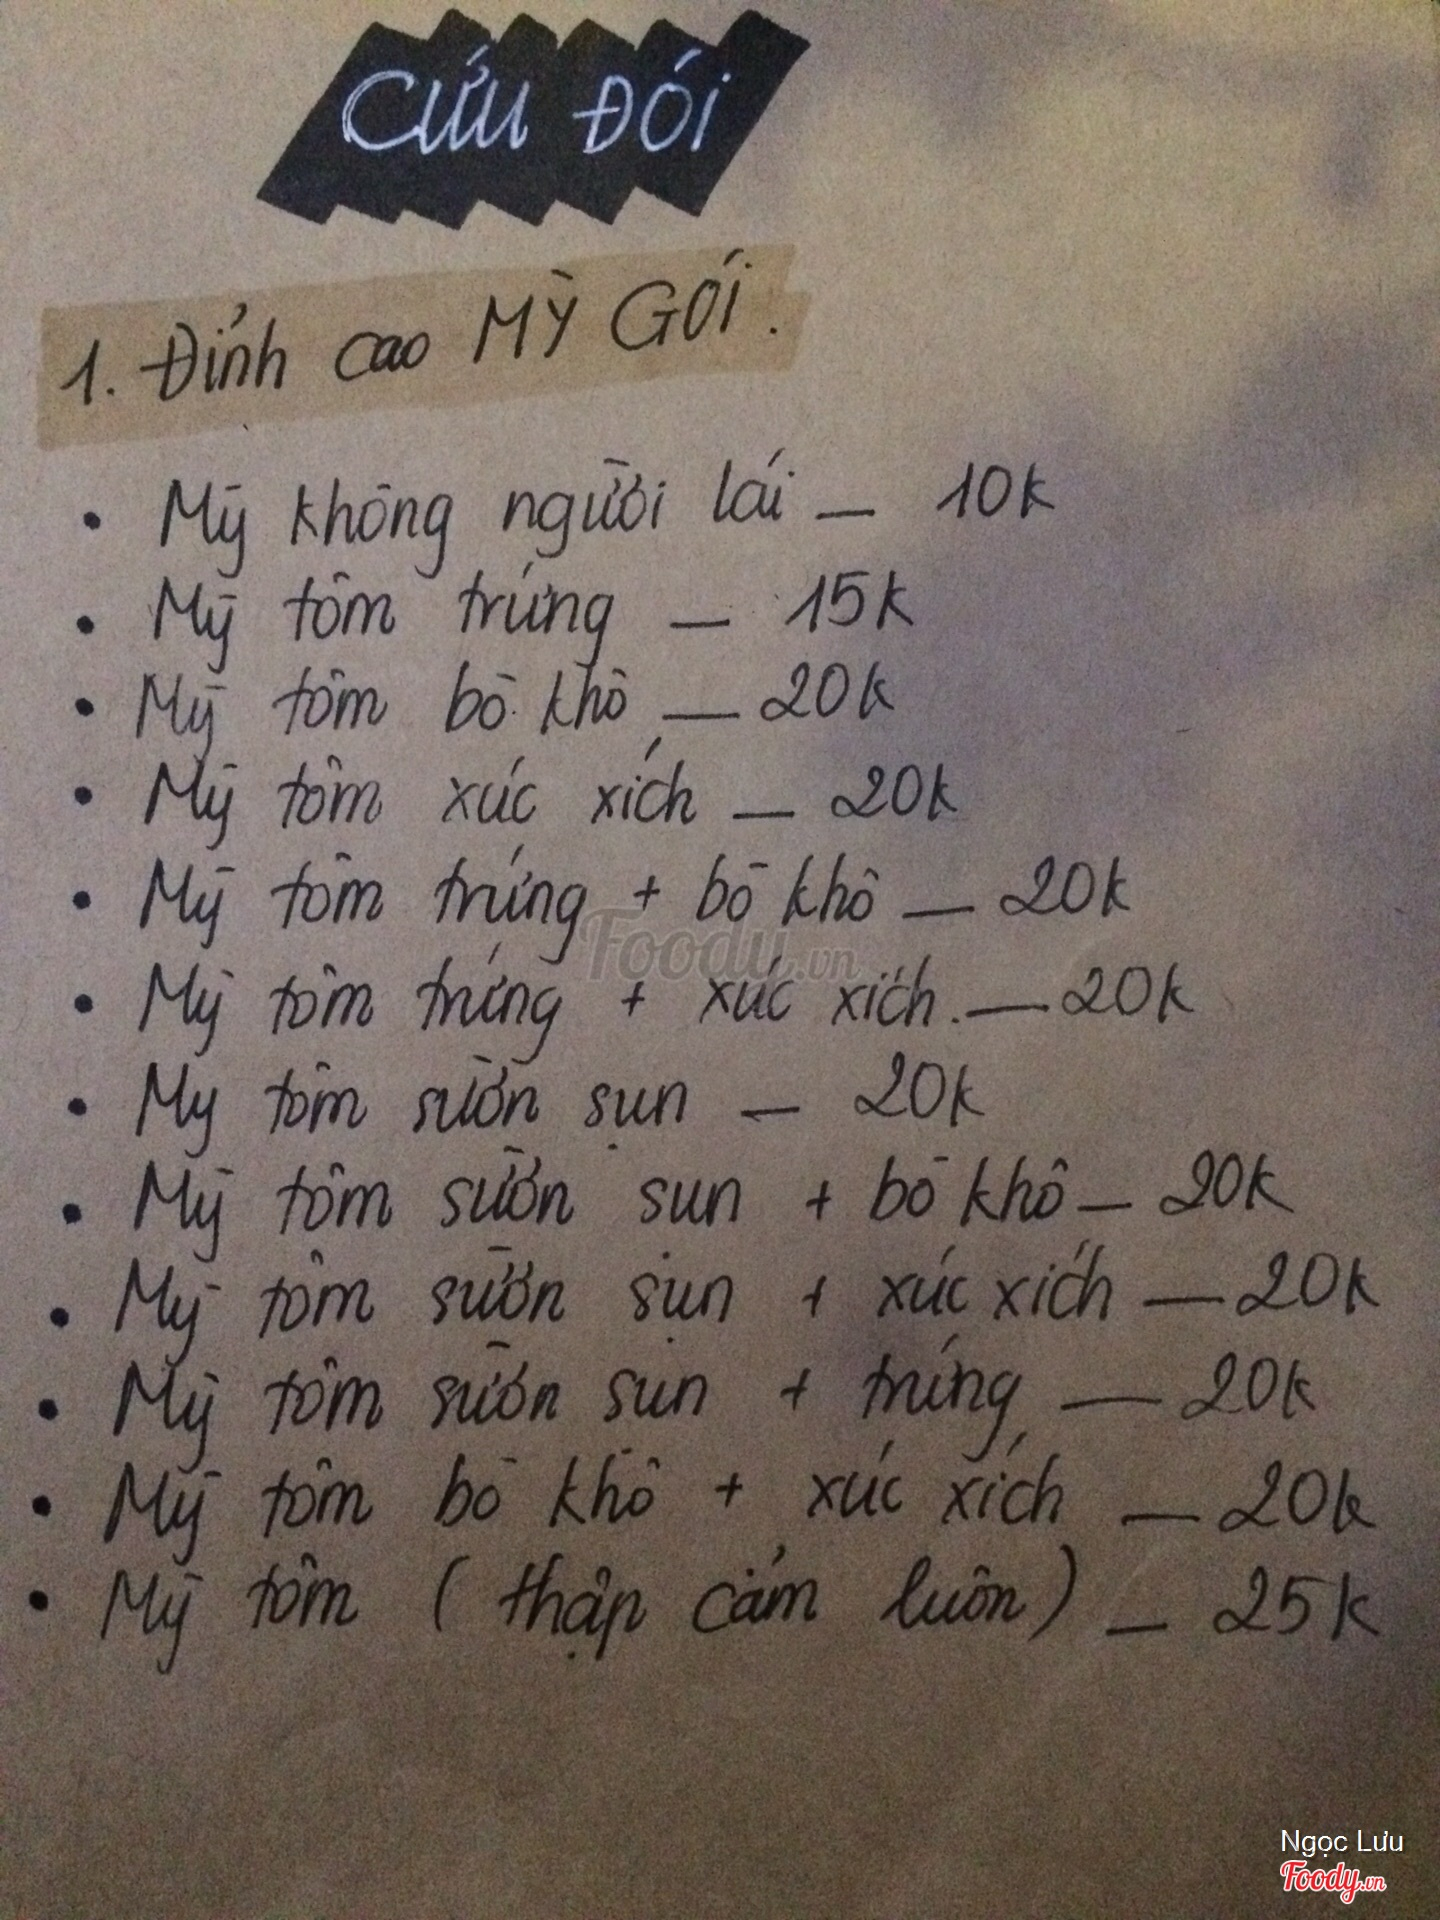 CỨU ĐÓI
1. Đỉnh cao MỲ GÓI.
• Mỳ không người lái — 10k
• Mỳ tôm trứng — 15k
• Mỳ tôm bò khô — 20k
• Mỳ tôm xúc xích — 20k
• Mỳ tôm trứng + bò khô — 20k
• Mỳ tôm trứng + xúc xích. — 20k
• My tôm sườn sụn — 20k
• Mỳ tôm sườn sụn + bò khô — 20k
• Mỳ tôm sườn sụn + xúc xích — 20k
• Mỳ tôm sườn sụn + trứng — 20k
• Mỳ tôm bò khô + xúc xích — 20k
• Mỳ tôm (thập cẩm luôn) — 25k
Foody.vn
Ngọc Lưu
Foody.vn